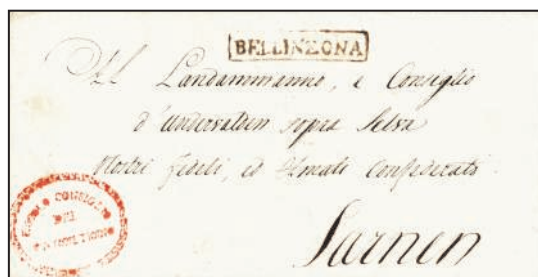 BELLINZONA
Al Landammanno, e Consiglio
d'Undervalden sopra Selva
nostri fedeli, ed Amati Confederati
Sarnen
PICCOLO CONSIGLIO
DEL